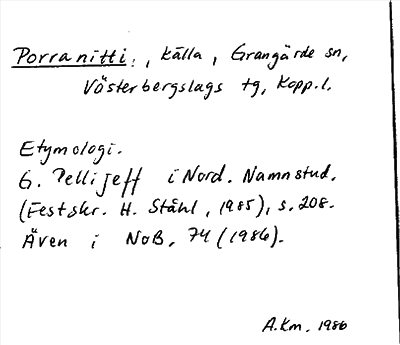 Porranitti:, källa, Grangärde sn,
Västerbergslags tg, Kopp.l.
Etymologi.
G. Pellijeff i Nord. Namnstud.
(Festskr. H. Ståhl, 1985), s. 208.
Även i NoB, 74 (1986).
A.Km. 1986